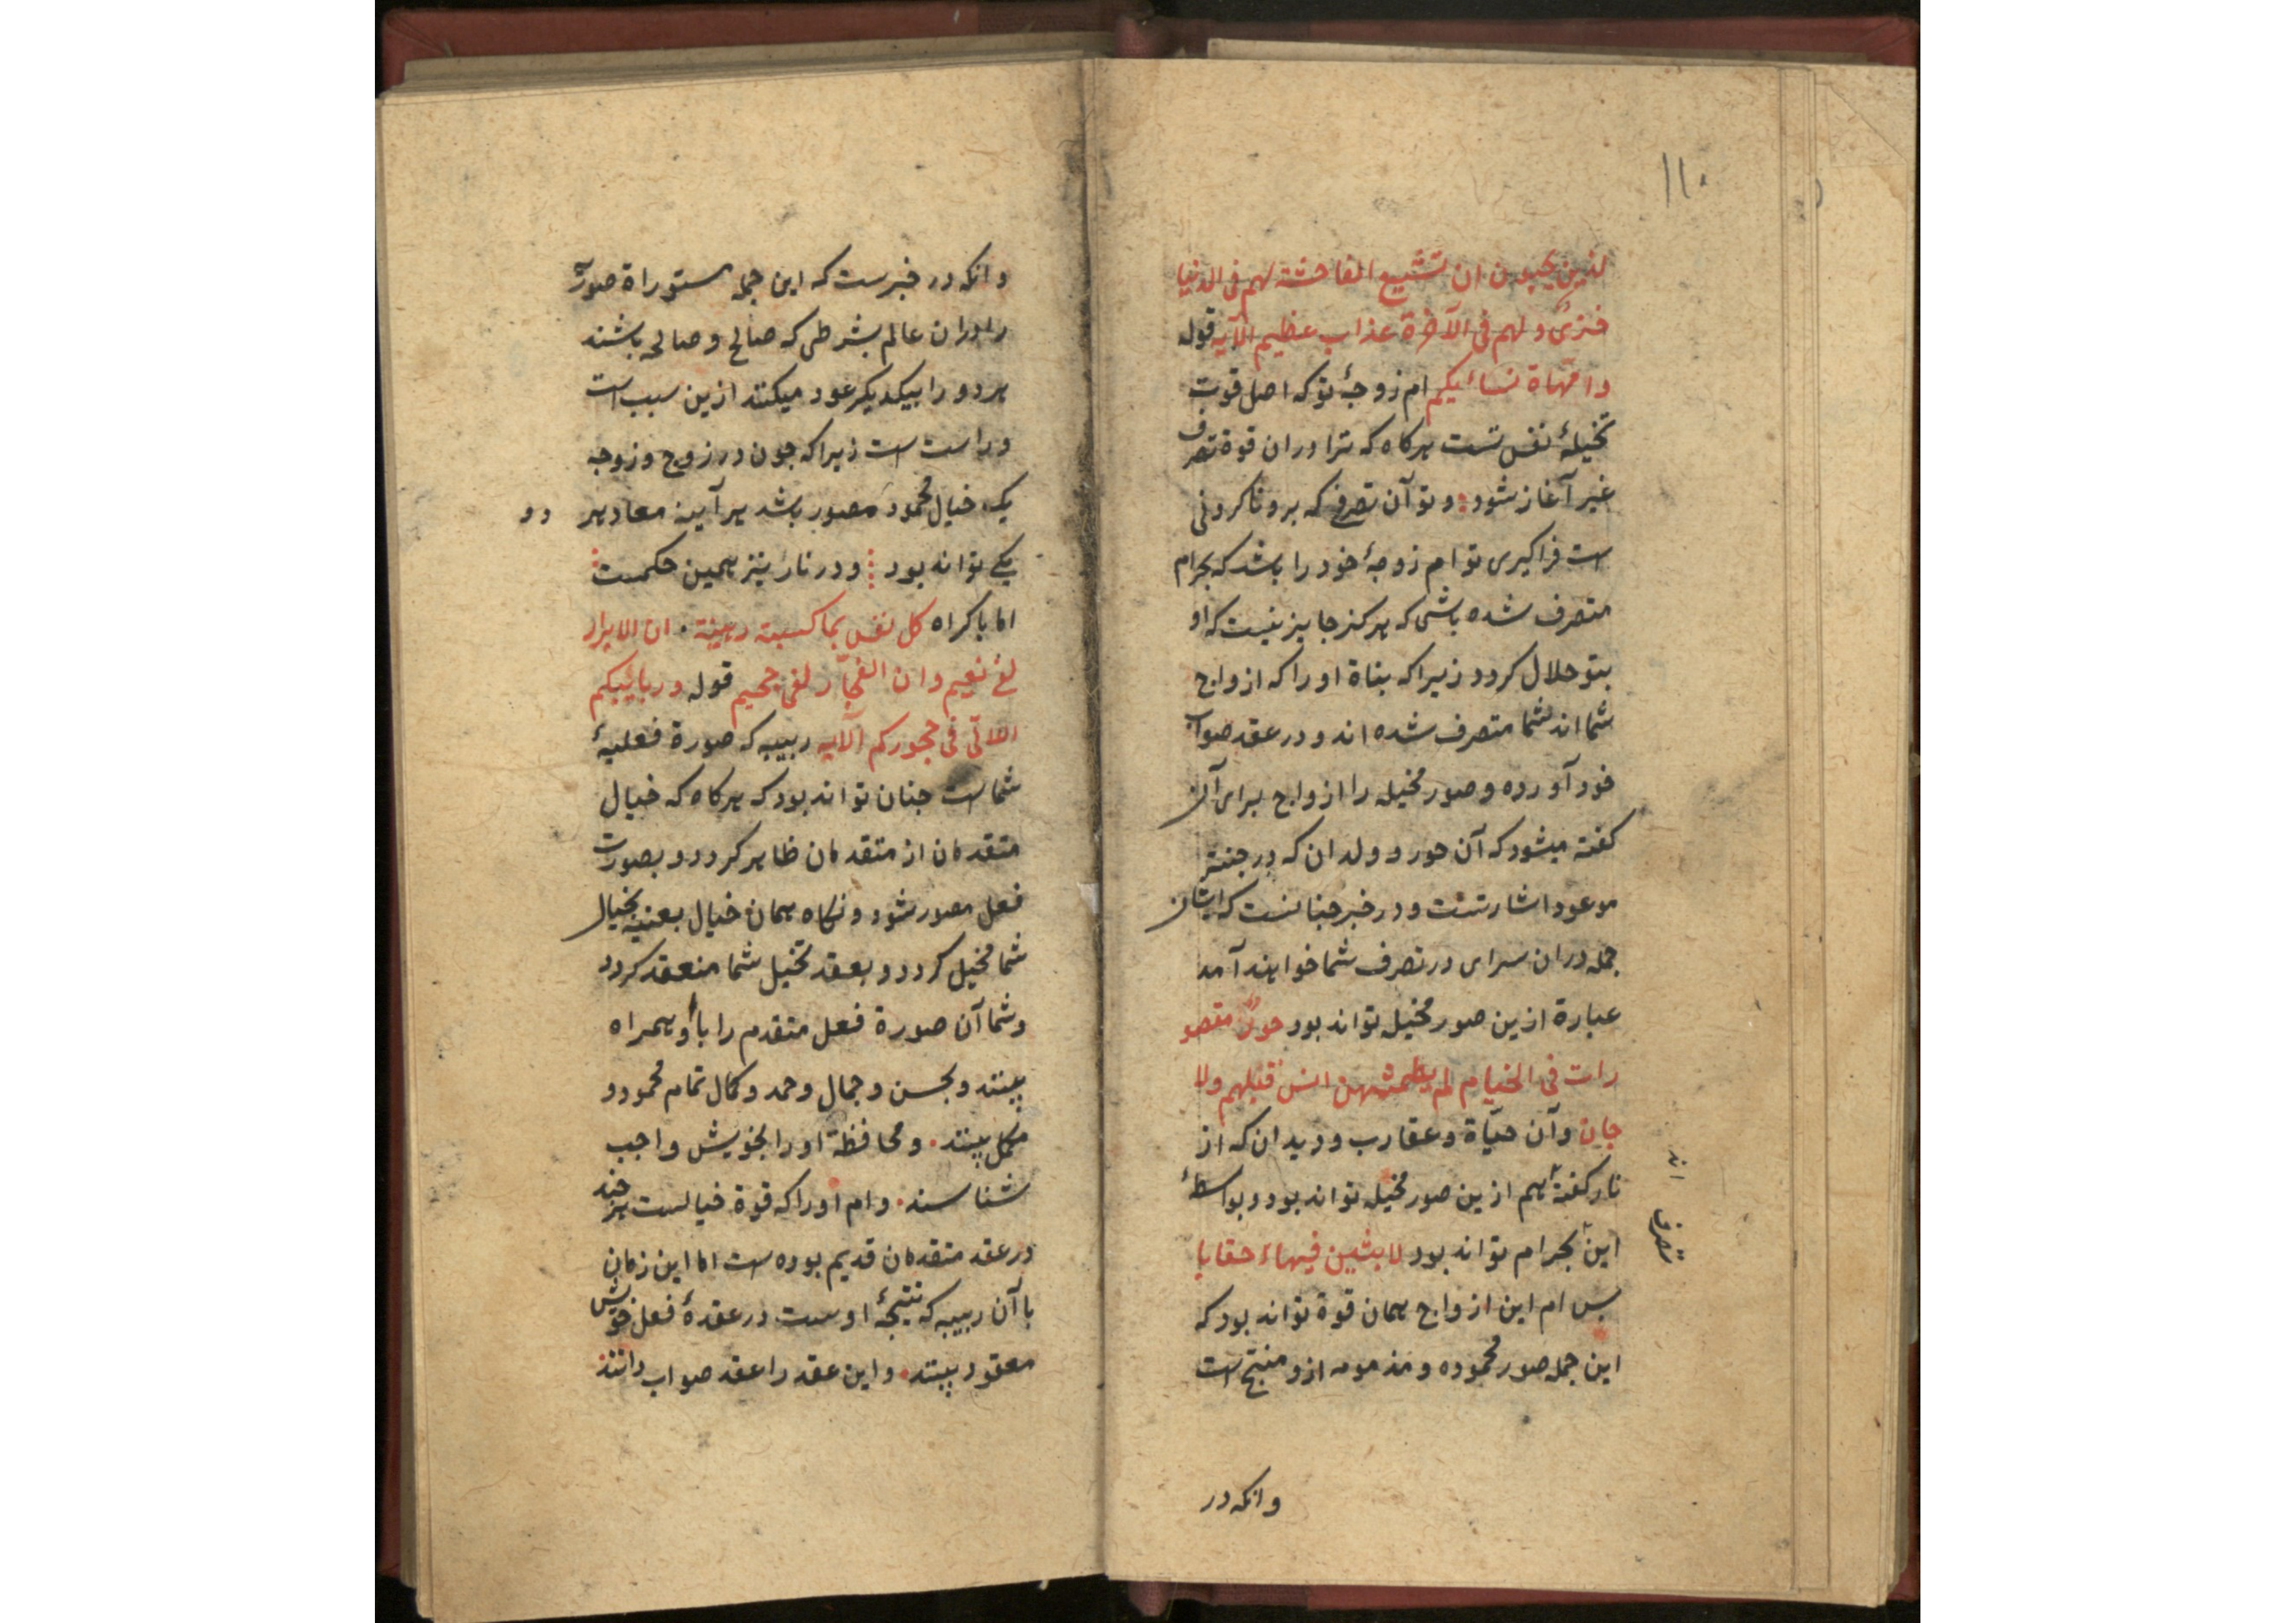 ۱۱۰
لذین یحبون ان تشیع الفاحشة لهم فی الدنیا
خزیٌ ولهم فی الآخرة عذاب عظیم الآیه قوله
وامّهاة نسائیکم ام زوجهٔ تو که اصل قوت
تخیلهٔ نفس تست هرکاه که ترا دران قوة تصرف
غیر آغاز شود و تو آن تصرفی که برو ناکردنی
است فراکیری تو ام زوجهٔ خود را باشد که بحرام
متصرف شده باشی که هرکز جایز نیست که او
بتو حلال کردد زیراکه بناة او را که ازواج
شما اند شما متصرف شده اند و در عقد صواب
خود آورده و صور مخیله را ازواج برای آن
کفته میشود که آن حور و ولدان که در جنته
موعود اشارتست و در خبر جنانست که ایشان
جمله دران سرای در تصرف شما خواهند آمد
عبارة ازین صور مخیله تواند بود حورٌ مقصو
رات فی الخیام لم یطمثهن انس قبلهم ولا
جان وآن حیّاة و عقارب و دیدان که از
نار کفته هم ازین صور مخیله تواند بود و بواسطهٔ
این بحرام تواند بود لابثین فیهاء حقابا
بس ام این ازواج همان قوة تواند بود که
این جمله صور محموده و مذمومه ازو منتج است
اند
تصرف
وانکه در
وانکه در خبرست که این جمله مستوراة صورت
را دران عالم بشرطی که صالح و صالحه باشند
هردو را بیکدیکر عود میکنند ازین سبب است
و راست است زیراکه جون در زوج و زوجه
یک خیال محمود مصور باشد هرآینه معاد هر دو
یکی تواند بود و در نار نیز همین حکمست
اما باکراه کل نفس بما کسبته رهینة ان الابرار
لفی نعیم وان الفجّار لفی جحیم قوله وربائیبکم
اللاتی فی حجورکم الآیه ربیبه که صورة فعلیهٔ
شماست جنان تواند بود که هرکاه که خیال
متقدمان از متقدمان ظاهر کردد و بصورت
فعل مصور شود و نکاه همان خیال بعینه بخیال
شما مخیل کردد و بعقد تخیل شما منعقد کردد
و شما آن صورة فعل متقدم را با او همراه
بینند و بحسن و جمال و حمد و کمال تمام محمود و
مکمل بینند و محافظة او را بخویش واجب
شناسند وام او را که قوة خیالست هرچند
در عقد متقدمان قدیم بوده است اما این زمان
با آن ربیبه که نتیجهٔ اوست در عقدهٔ فعل خویش
معقود بینند و این عقد را عقد صواب دانند